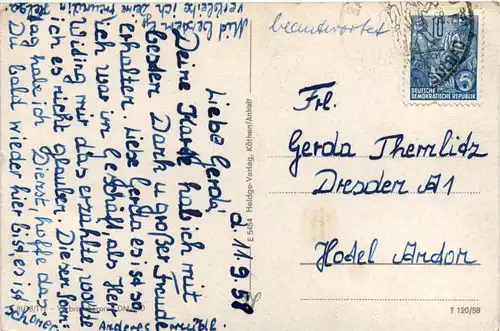 beantwortet
DEUTSCHE
DEMOKRATISCHE REPUBLIK
10
Frl.
Gerda Themlitz
Dresden A1
Hodel Andor
T 120/58
E 5454 Heldge-Verlag, Köthen/Anhalt
d. 11.9.58
Liebe Gerda!
Deine Karte hab ich mit
besden Dank u. großer Freude
erhalten. Liebe Gerda es ist so
ich war im Geschäft, als Herr
Widing mir das erzählte, wollte
ich es nicht glauben. Diesen Sonn-
tag habe ich Dienst, hoffe das
Du bald wieder hier bist, es ist
schöner
Anderes
Mid
verbleibe ich deine Freundin
Helga